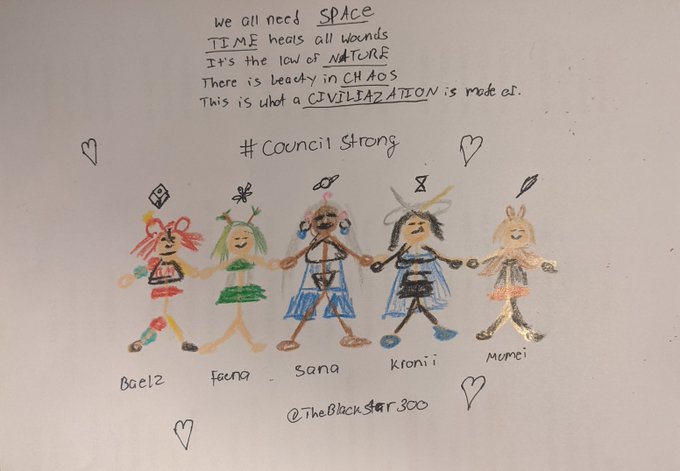 We all need SPACE
TIME heals all wounds
It's the law of NATURE
There is beauty in CHAOS
This is what a CIVILIAZATION is made of.
#Council Strong
Baelz Fauna Sana Kronii Mumei
@TheBlackStar300